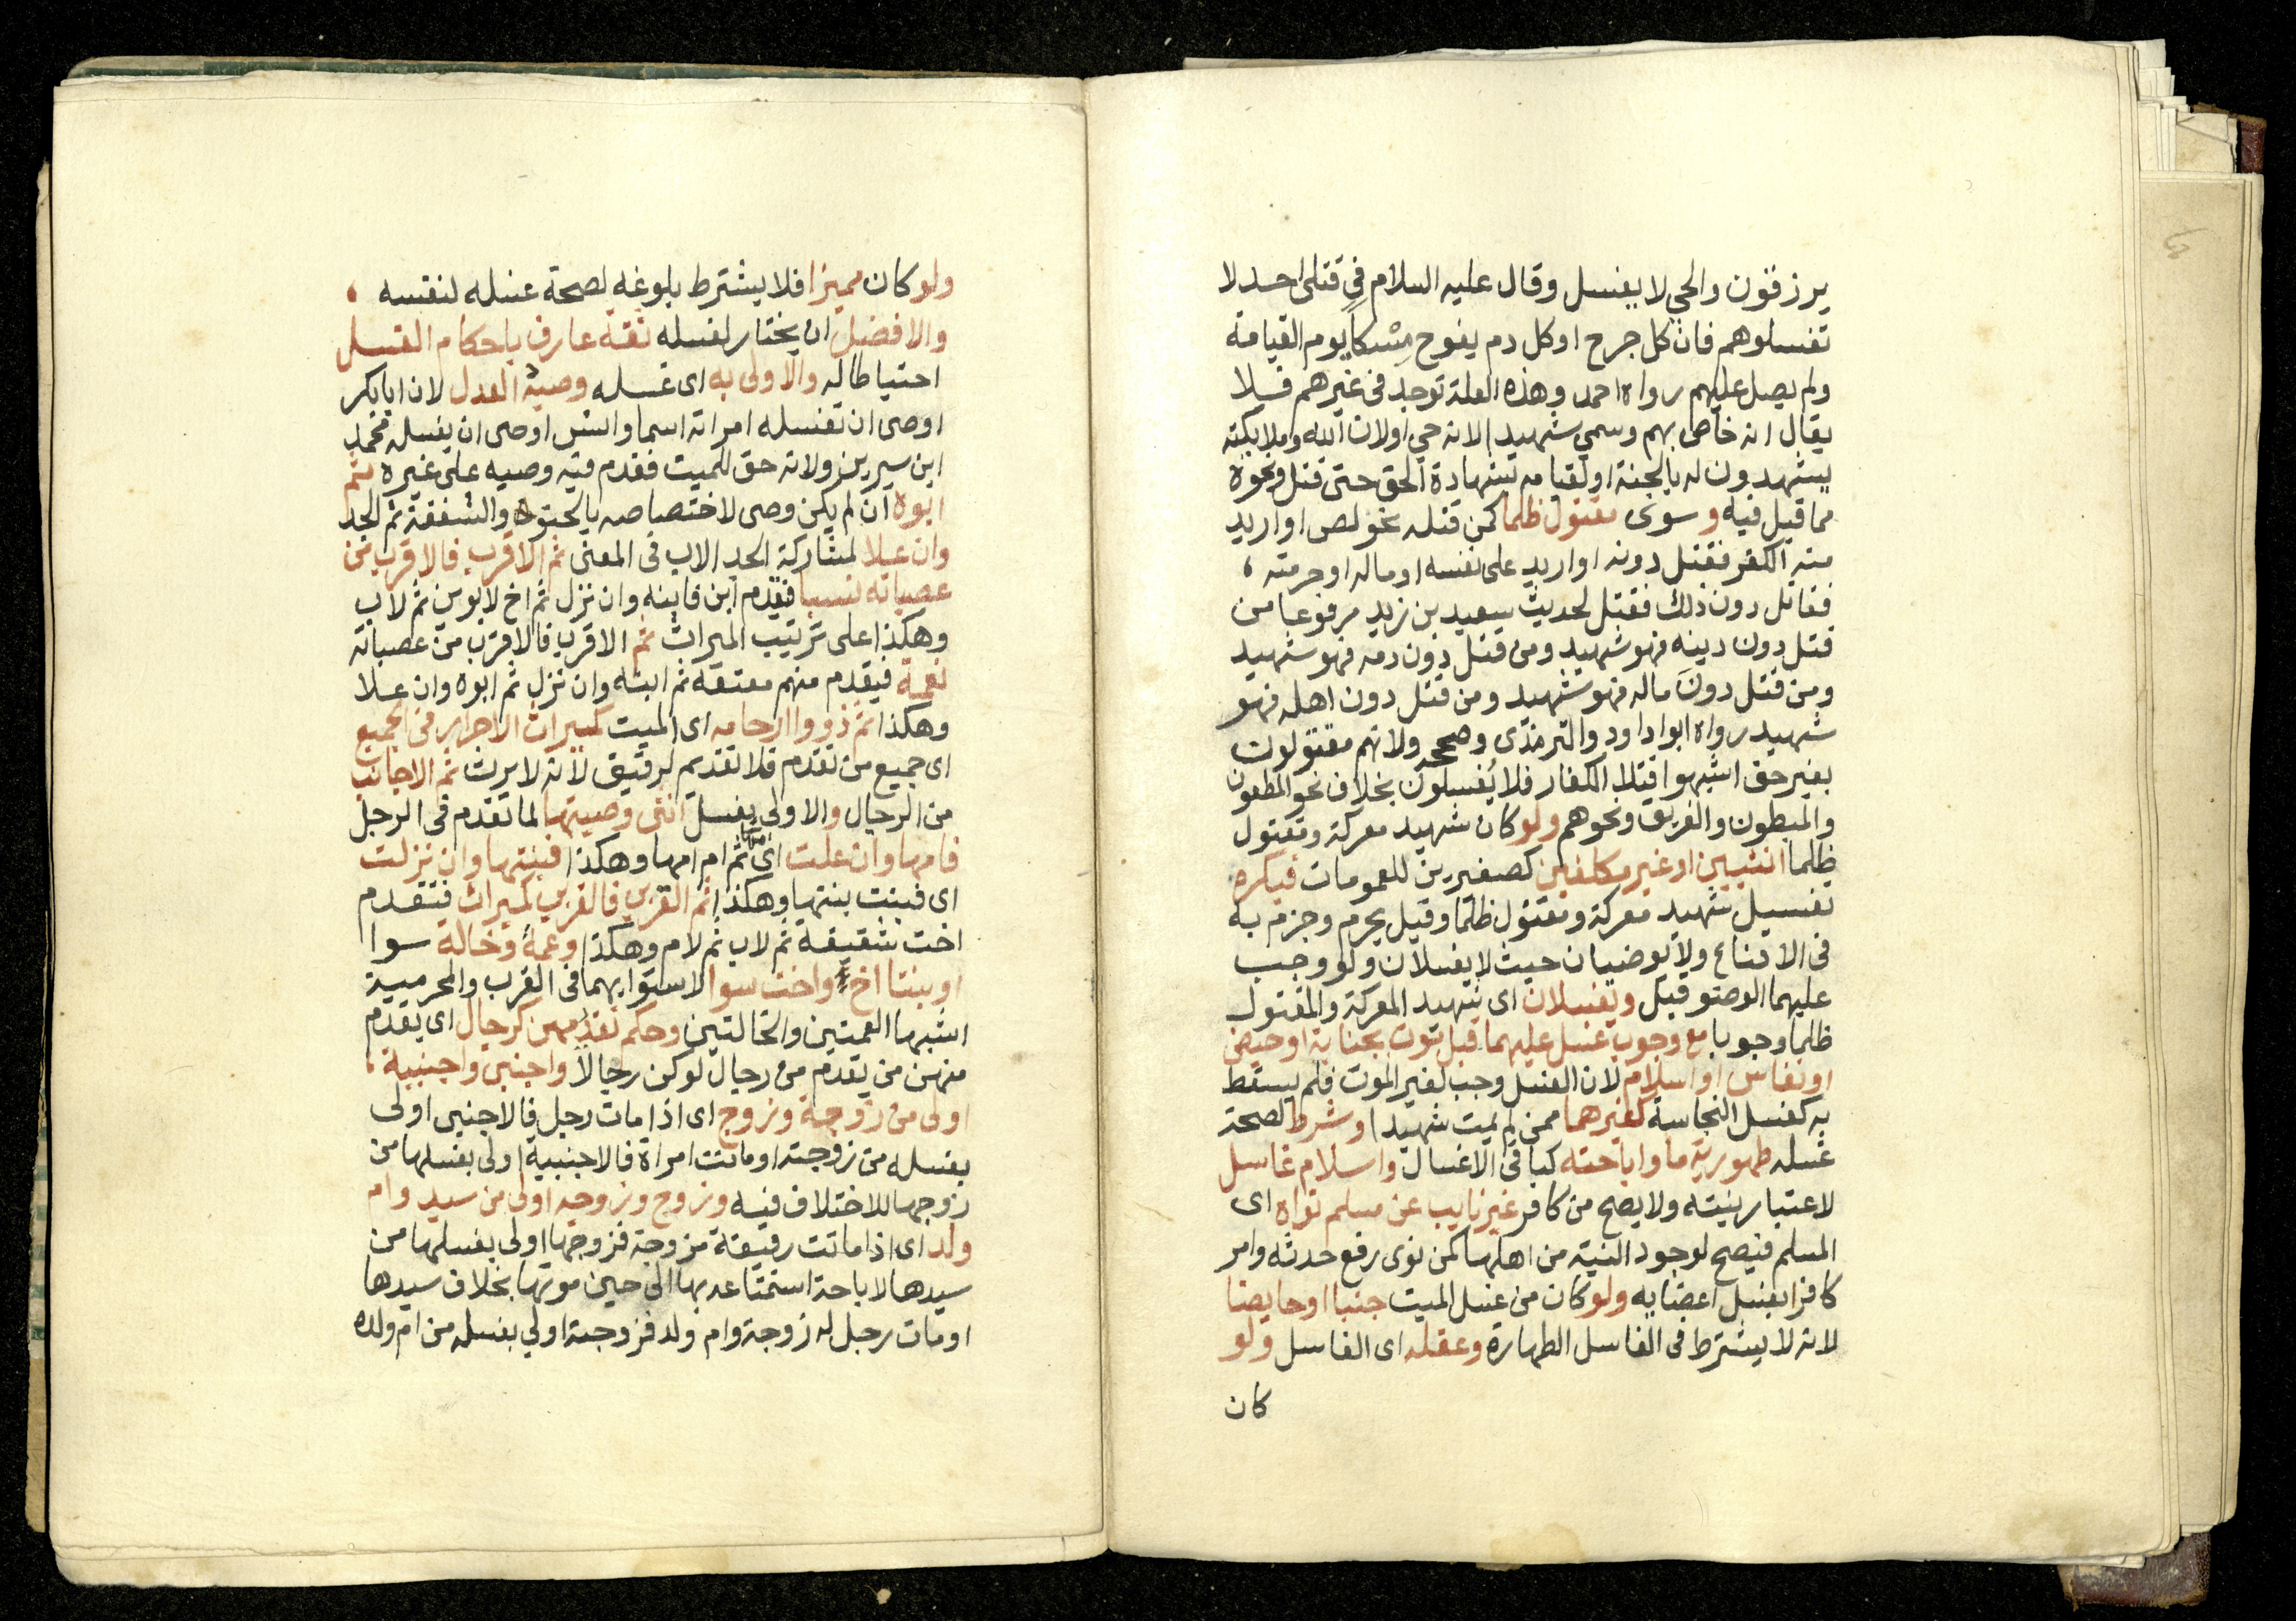 يرزقون والحي لا يغسل وقال عليه السلام في قتلى احد لا
تغسلوهم فان كل جرح او كل دم يفوح مسكا يوم القيامة
ولم يصل عليهم رواه احمد وهذه العلة توجد في غيرهم فلا
يقال انه خاص بهم وسمي شهيدا لانه حي اولان الله وملايكته
يشهدون له بالجنة او لقيامه بشهادة الحق حتى قتل ونحوه
مما قيل فيه وسوى مقتول ظلما كمن قتله نحو لص او اريد
منه الكفر فقتل دونه او اريد على نفسه او ماله او حرمته ،
فقاتل دون ذلك فقتل لحديث سعيد بن زيد مرفوعا من
قتل دون دينه فهو شهيد ومن قتل دون دمه فهو شهيد
ومن قتل دون ماله فهو شهيد ومن قتل دون اهله فهو
شهيد رواه ابوا داود والترمذى وصححه ولانهم مقتولون
بغير حق اشبهوا قتلا الكفار فلا يُغسلون بخلاف نحو المطعون
والمبطون والغريق ونحوهم ولو كان شهيد معركة ومقتول
ظلما انثيين او غير مكلفين كصغيرين للعمومات فيكره
تغسيل شهيد معركة ومقتول ظلما وقيل يحرم وجزم به
فى الاقناع ولا يوضيان حيث لا يغسلان ولو وجب
عليهما الوضو قبل ويغسلان اى شهيد المعركة والمقتول
ظلما وجوبا مع وجوب غسل عليهما قبل موت بجنابة او حيض
او نفاس او اسلام لان الغسل وجب لغير الموت فلم يسقط
به كغسل النجاسة كغيرهما ممن لم يمت شهيدا وشرط لصحة
غسله طهورية ما واباحته كباقى الاغسال واسلام غاسل
لاعتبار نيته ولا يصح من كافر غير نايب عن مسلم نواه اى
المسلم فيصح لوجود النية من اهلها كمن نوى رفع حدثه وامر
كافرا بغسل اعضايه ولو كان من غسل الميت جنبا او حايضا
لانه لا يشترط فى الغاسل الطهارة وعقله اى الغاسل ولو
كان
ولو كان مميزا فلا يشترط بلوغه لصحة غسله لنفسه ،
والافضل ان يختار لغسله ثقة عارف باحكام الغسل
احتياطا له والاولى به اى غسله وصيه العدل لان ابابكر
اوصى ان تغسله امراته اسما وانس اوصى ان يغسله محمد
ابن سيرين ولانه حق للميت فقدم فيه وصيه على غيره ثم
ابوه ان لم يكن وصى لاختصاصه بالحنو والشفقة ثم الجد
وان علا لمشاركة الجد الاب فى المعنى ثم الاقرب فالاقرب من
عصباته نسبا فقدم ابن فابنه وان نزل ثم اخ لابوين ثم لاب
وهكذا على ترتيب الميراث ثم الاقرب فالاقرب من عصباته
نعمة فيقدم منهم معتقه ثم ابنه وان نزل ثم ابوه وان علا
وهكذا ثم ذووا ارحامه اى الميت كميراث الاحرار فى الجميع
اى جميع من تقدم فلا تقديم لرقيق لانه لا يرث ثم الاجانب
من الرجال والاولى بغسل انثى وصيتها لما تقدم فى الرجل
فامها وان علت اى امها ثم ام امها وهكذا فبنتها وان نزلت
اى فبنت بنتها وهكذا ثم القربى فالقربى كميراث فتقدم
اخت شقيقة ثم لاب ثم لام وهكذا وعمة وخالة سوا
او بنتا اخ واخت سوا لاستوايهما فى القرب والمحرمية
اشبها العمتين والخالتين وحكم تقديمهن كرجال اى يقدم
منهن من يقدم من رجال لو كن رجالاً واجنبى واجنبية ،
اولى من زوجة وزوج اى اذا مات رجل فالاجنبى اولى
بغسله من زوجته او ماتت امراة فالاجنبية اولى بغسلها من
زوجها للاختلاف فيه وزوج وزوجه اولى من سيد وام
ولد اى اذا ماتت رقيقة مزوجة فزوجها اولى بغسلها من
سيدها لاباحة استمتاعه بها الى حين موتها بخلاف سيدها
او مات رجل له زوجة وام ولد فزوجته اولى بغسله من ام ولده